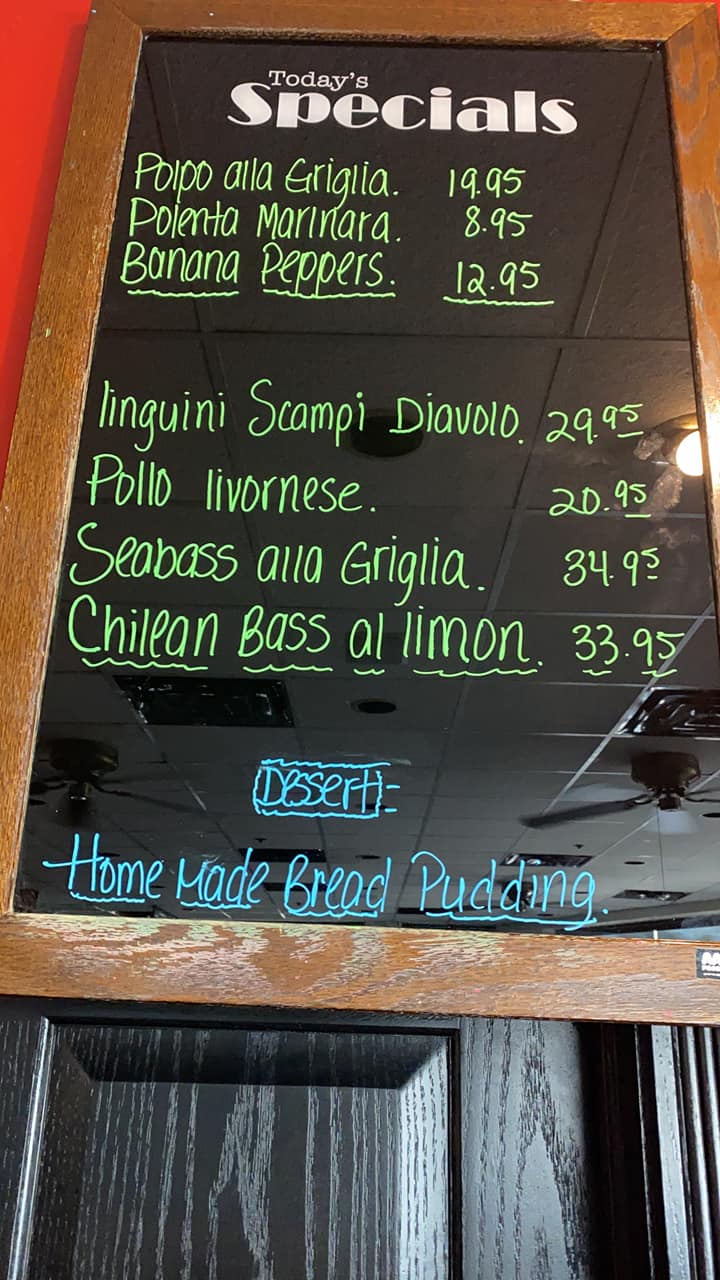 Today's
Specials
Polpo alla Griglia. 19.95
Polenta Marinara. 8.95
Banana Peppers. 12.95
linguini Scampi Diavolo. 29.95
Pollo livornese. 20.95
Seabass alla Griglia. 34.95
Chilean Bass al limon. 33.95
Dessert:
Home Made Bread Pudding.